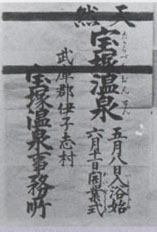 天然
宝塚温泉
五月八日入浴始
六月廿一日開業式
武庫郡伊子志村
宝塚温泉事務所